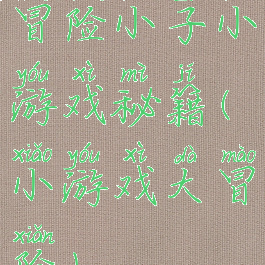 冒险小子小
yóu xì mì jí
游戏秘籍(
xiǎo yóu xì dà mào
小游戏大冒
xiǎn
险)